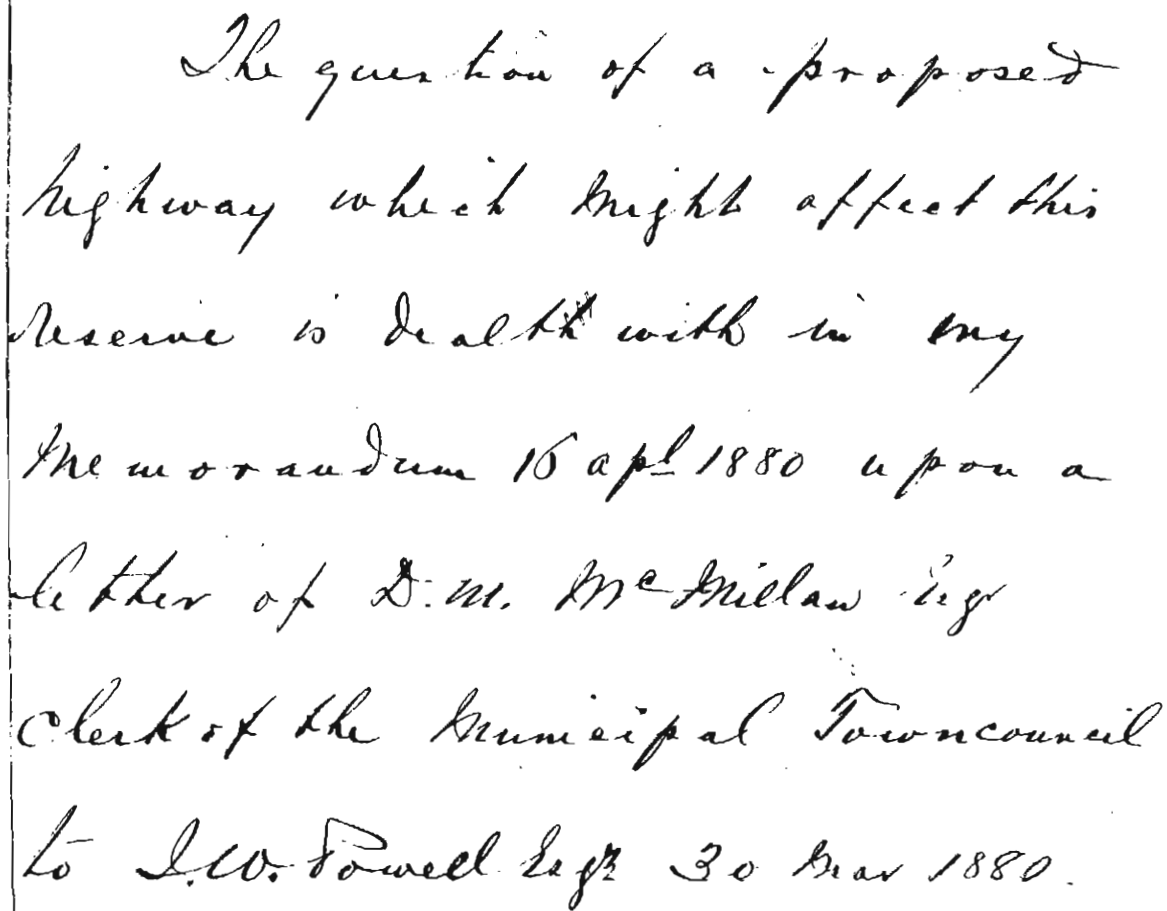 The question of a proposed
highway which might affect this
Reserve is dealt with in my
Memorandum 16 apl 1880 upon a
letter of D.M. McMillan Esqr
Clerk of the Municipal Towncouncil
to I.W. Powell Esqr 30 Mar 1880.